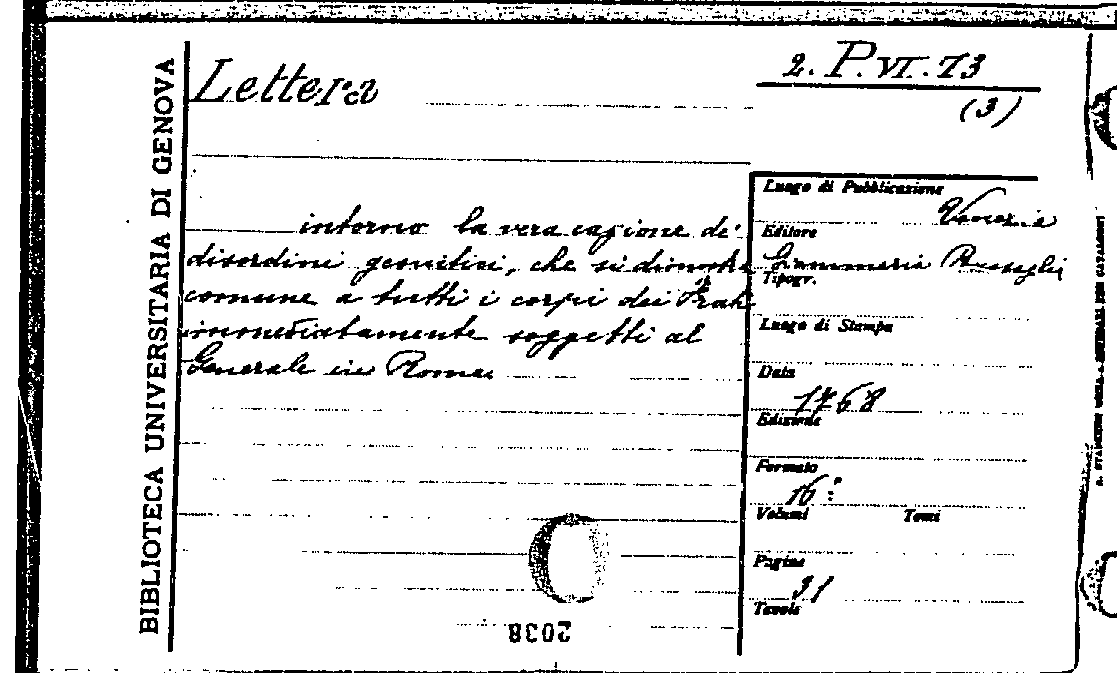 BIBLIOTECA UNIVERSITARIA DI GENOVA
Lettera
2. P. VI. 73
(3)
intorno la vera cagione de'
disordini gesuitici, che si dimostra
comune a tutti i corpi dei Frati
immediatamente soggetti al
Generale in Roma
Luogo di Pubblicazione
Venezia
Editore
Giammaria Bassaglia
Tipogr.
Luogo di Stampa
Data
1768
Edizione
Formato
16°
Volumi Tomi
Pagine
31
Tavole
2038